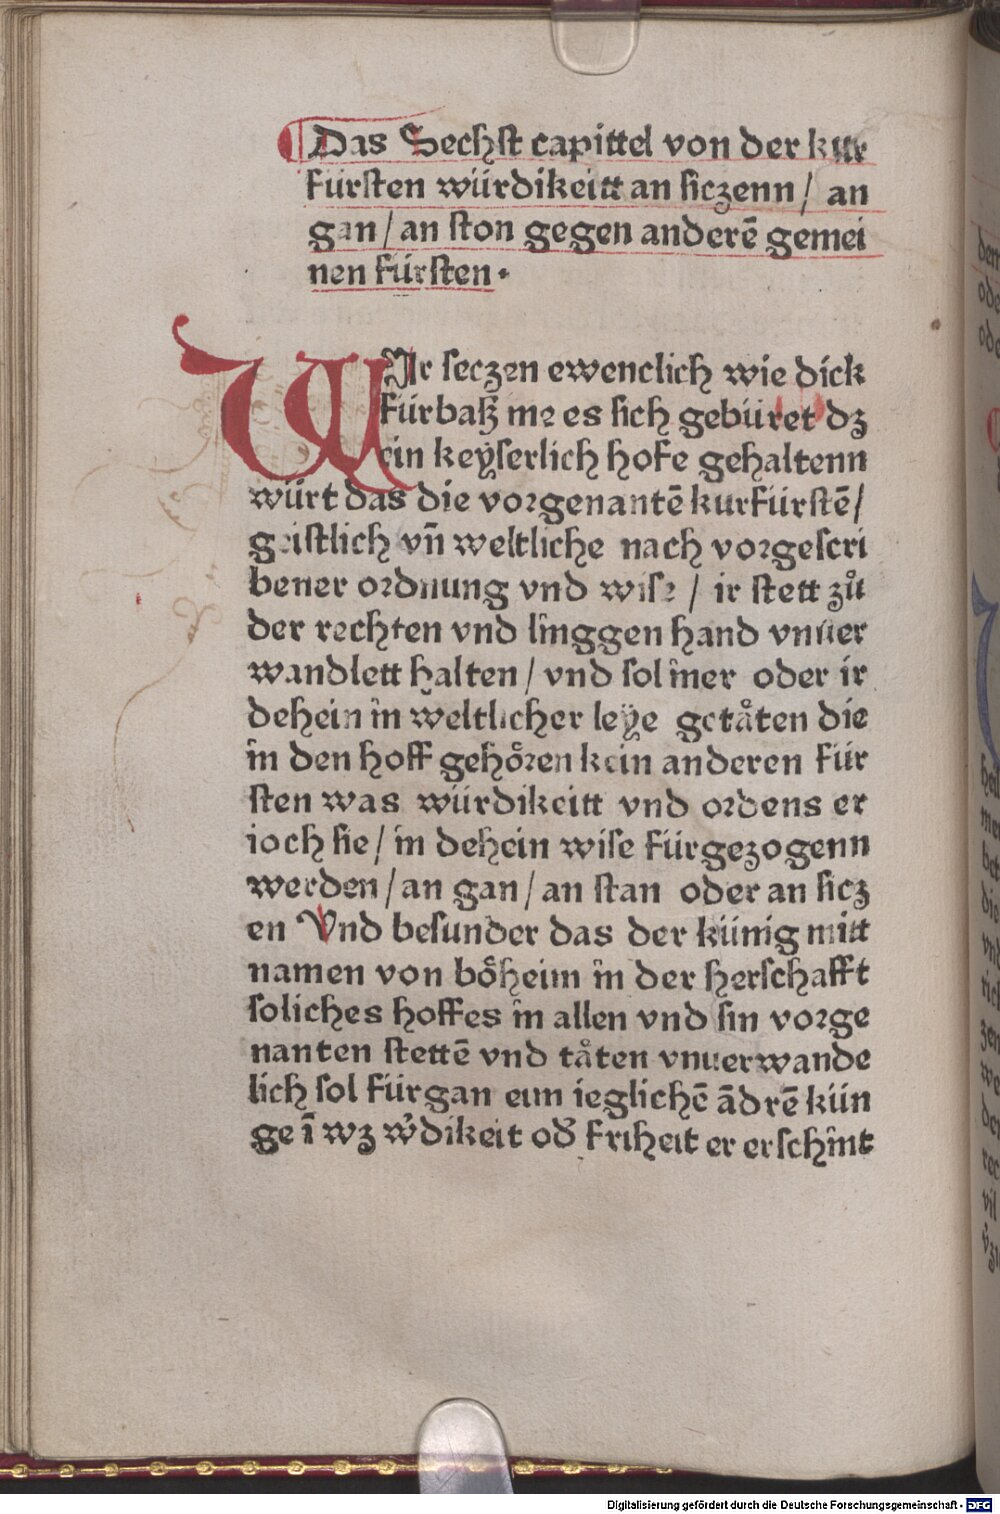 Das Sechst capittel von der kur
fürsten würdikeitt an siczenn / an
gan / an ston gegen anderē gemei
nen fürsten.
WIr seczen ewenclich wie dick
fürbasz me es sich gebüret dz
ein keÿserlich hofe gehaltenn
würt das die vorgenantē kurfürstē /
geistlich vn̄ weltliche nach vorgescri
bener ordnung vnd wise / ir stett zů
der rechten vnd linggen hand vnuer
wandlett halten / vnd sol imer oder ir
dehein in weltlicher leÿe getåten die
in den hoff gehoͤren kein anderen für
sten was würdikeitt vnd ordens er
ioch sie / in dehein wise fürgezogenn
werden / an gan / an stan oder an sicz
en Vnd besunder das der künig mitt
namen von boͤheim in der herschafft
soliches hoffes in allen vnd sin vorge
nanten stettē vnd tåten vnuerwande
lich sol fürgan eim ieglichē ādrē kün
ge ī wz w̓dikeit od̓ friheit er erschint
Digitalisierung gefördert durch die Deutsche Forschungsgemeinschaft - DFG